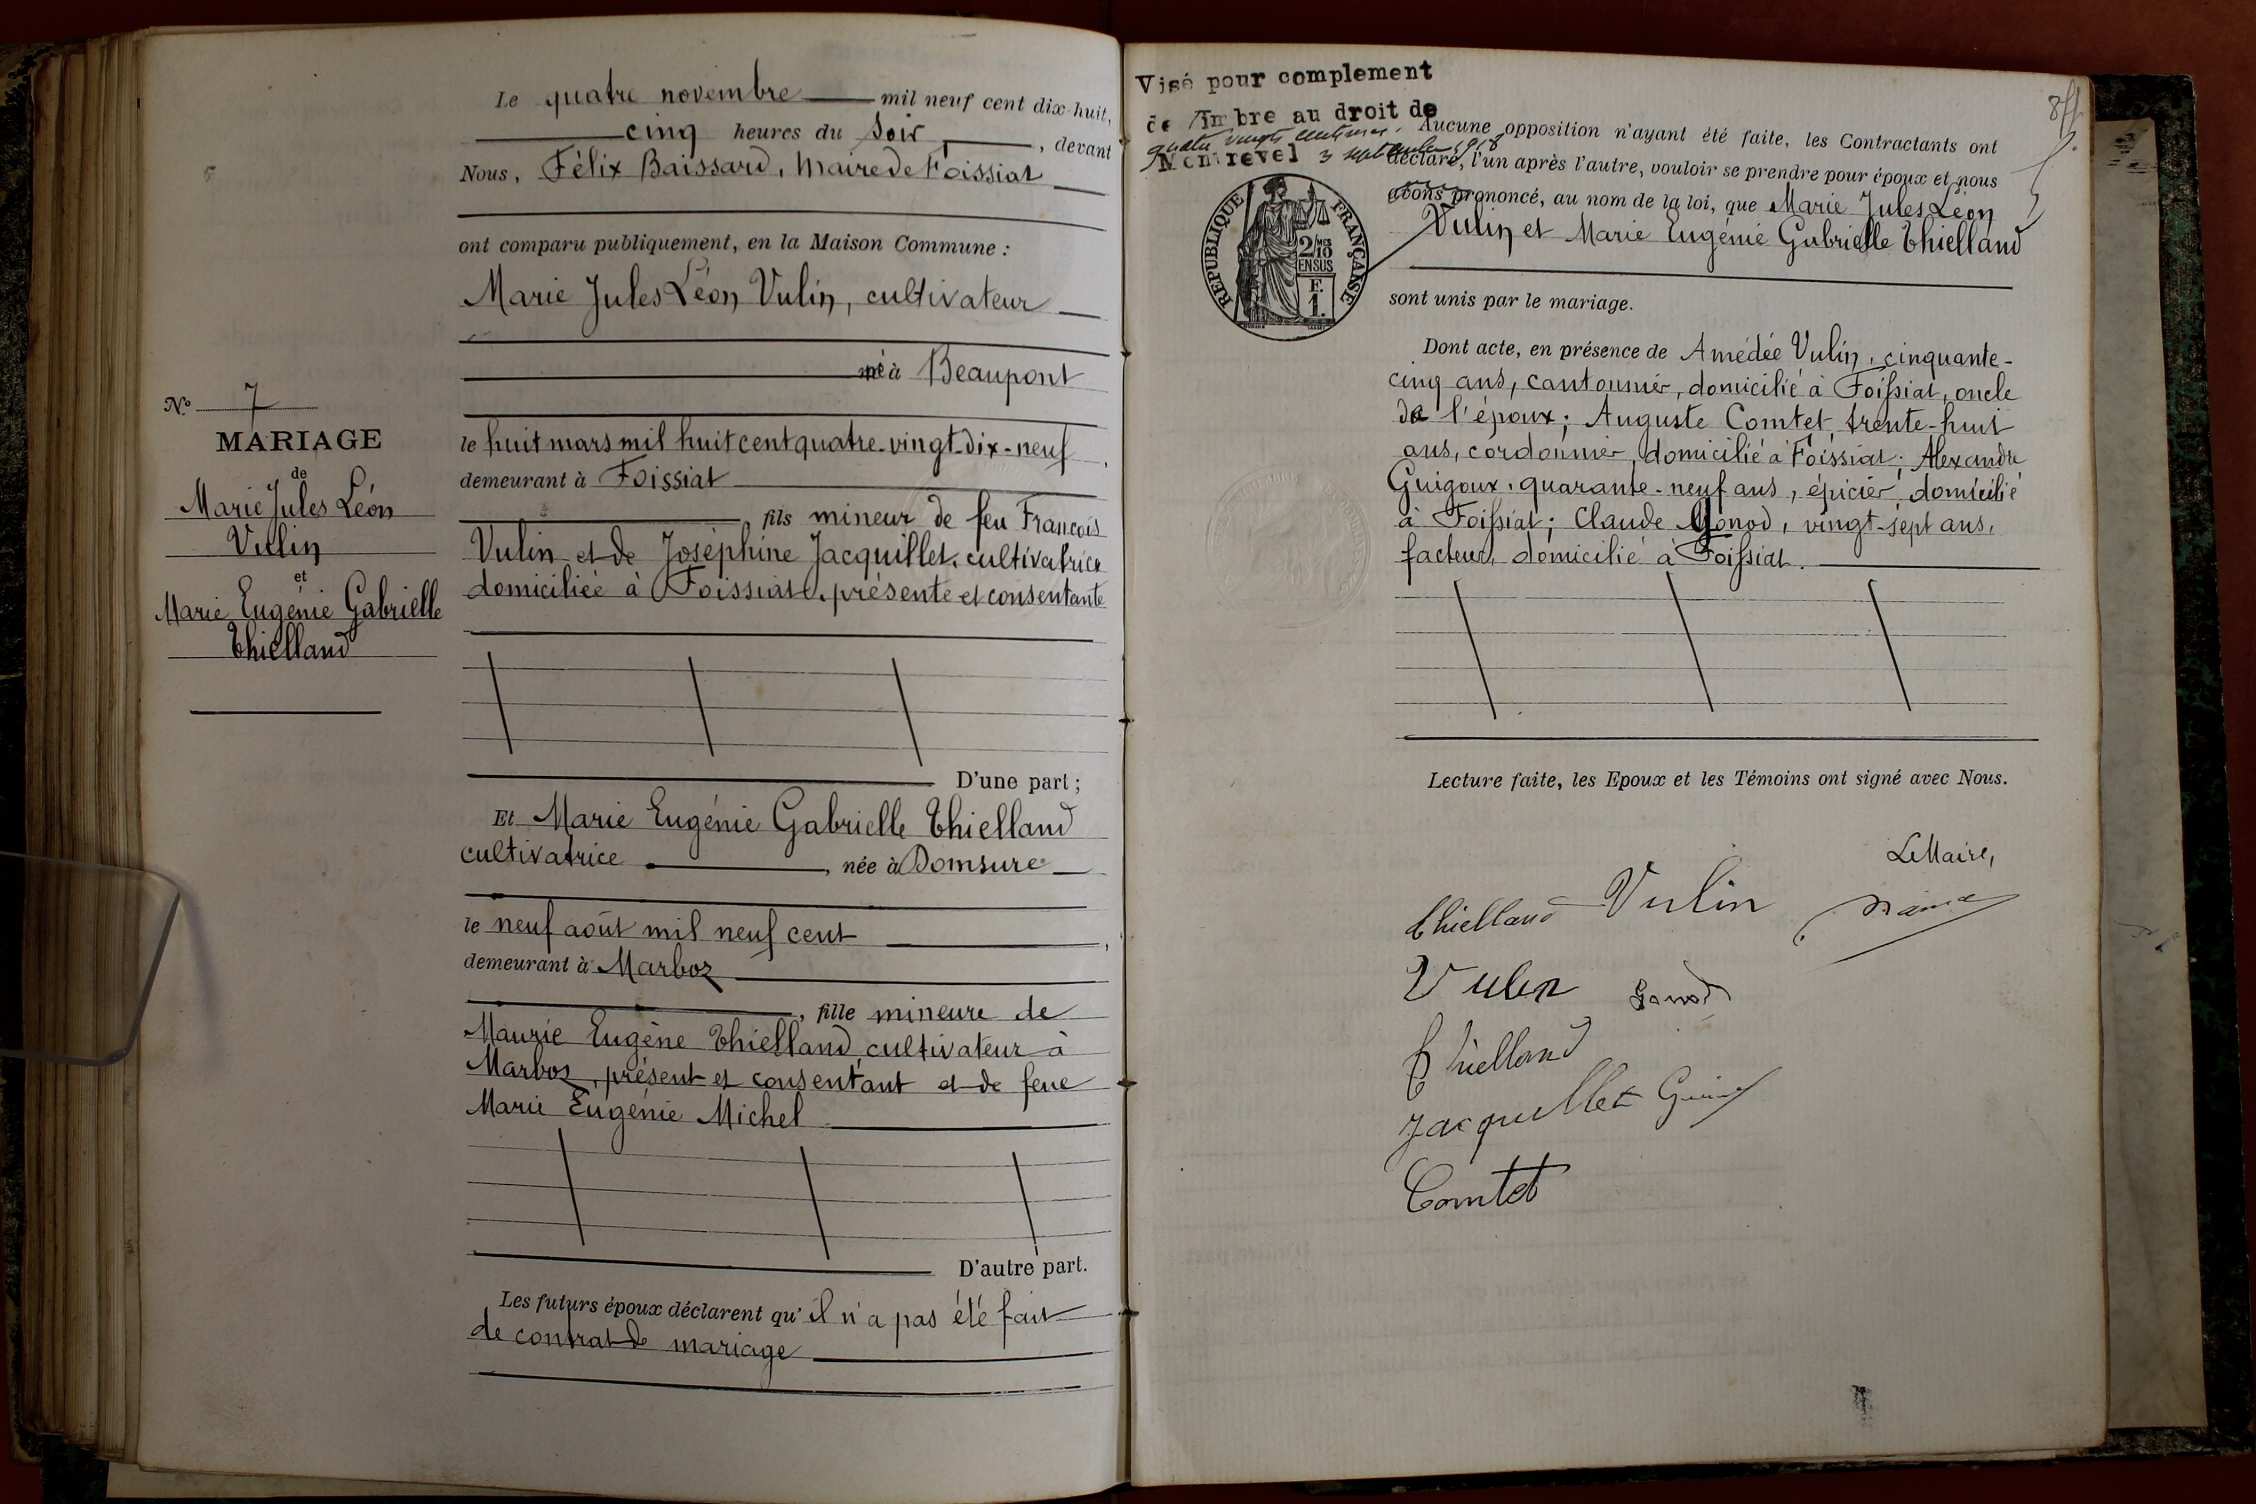 Le quatre novembre mil neuf cent dix-huit,
cinq heures du soir, devant
Nous, Félix Baissard, Maire de Foissiat
ont comparu publiquement, en la Maison Commune :
Marie Jules Léon Vulin, cultivateur
né à Beaupont
le huit mars mil huit cent quatre-vingt-dix-neuf,
demeurant à Foissiat
fils mineur de feu François
Vulin et de Joséphine Jacquillet, cultivatrice
domiciliée à Foissiat, présente et consentante
D'une part ;
N° 7
MARIAGE
de
Marie Jules Léon
Vulin
et
Marie Eugénie Gabrielle
Thielland
Et Marie Eugénie Gabrielle Thielland
cultivatrice, née à Domsure
le neuf août mil neuf cent,
demeurant à Marboz
, fille mineure de
Maurie Eugène Thielland, cultivateur à
Marboz, présent et consentant et de feue
Marie Eugénie Michel
D'autre part.
Les futurs époux déclarent qu'il n'a pas été fait
de contrat de mariage
Visé pour complement
de Timbre au droit de
quatre vingts centimes.
Montrevel 3 septembre 1918
REPUBLIQUE FRANÇAISE
2/10
EN SUS
F.
1.
Aucune opposition n'ayant été faite, les Contractants ont
déclaré, l'un après l'autre, vouloir se prendre pour époux et nous
avons prononcé, au nom de la loi, que Marie Jules Léon
Vulin et Marie Eugénie Gabrielle Thielland
sont unis par le mariage.
Dont acte, en présence de Amédée Vulin, cinquante-
cinq ans, cantonnier, domicilié à Foissiat, oncle
de l'époux ; Auguste Comtet, trente-huit
ans, cordonnier, domicilié à Foissiat ; Alexandre
Guigoux, quarante-neuf ans, épicier, domicilié
à Foissiat ; Claude Gonod, vingt-sept ans,
facteur, domicilié à Foissiat.
Lecture faite, les Epoux et les Témoins ont signé avec Nous.
Le Maire,
Thielland Vulin
Vulin Gonod
Thielland
Jacquillet
Comtet